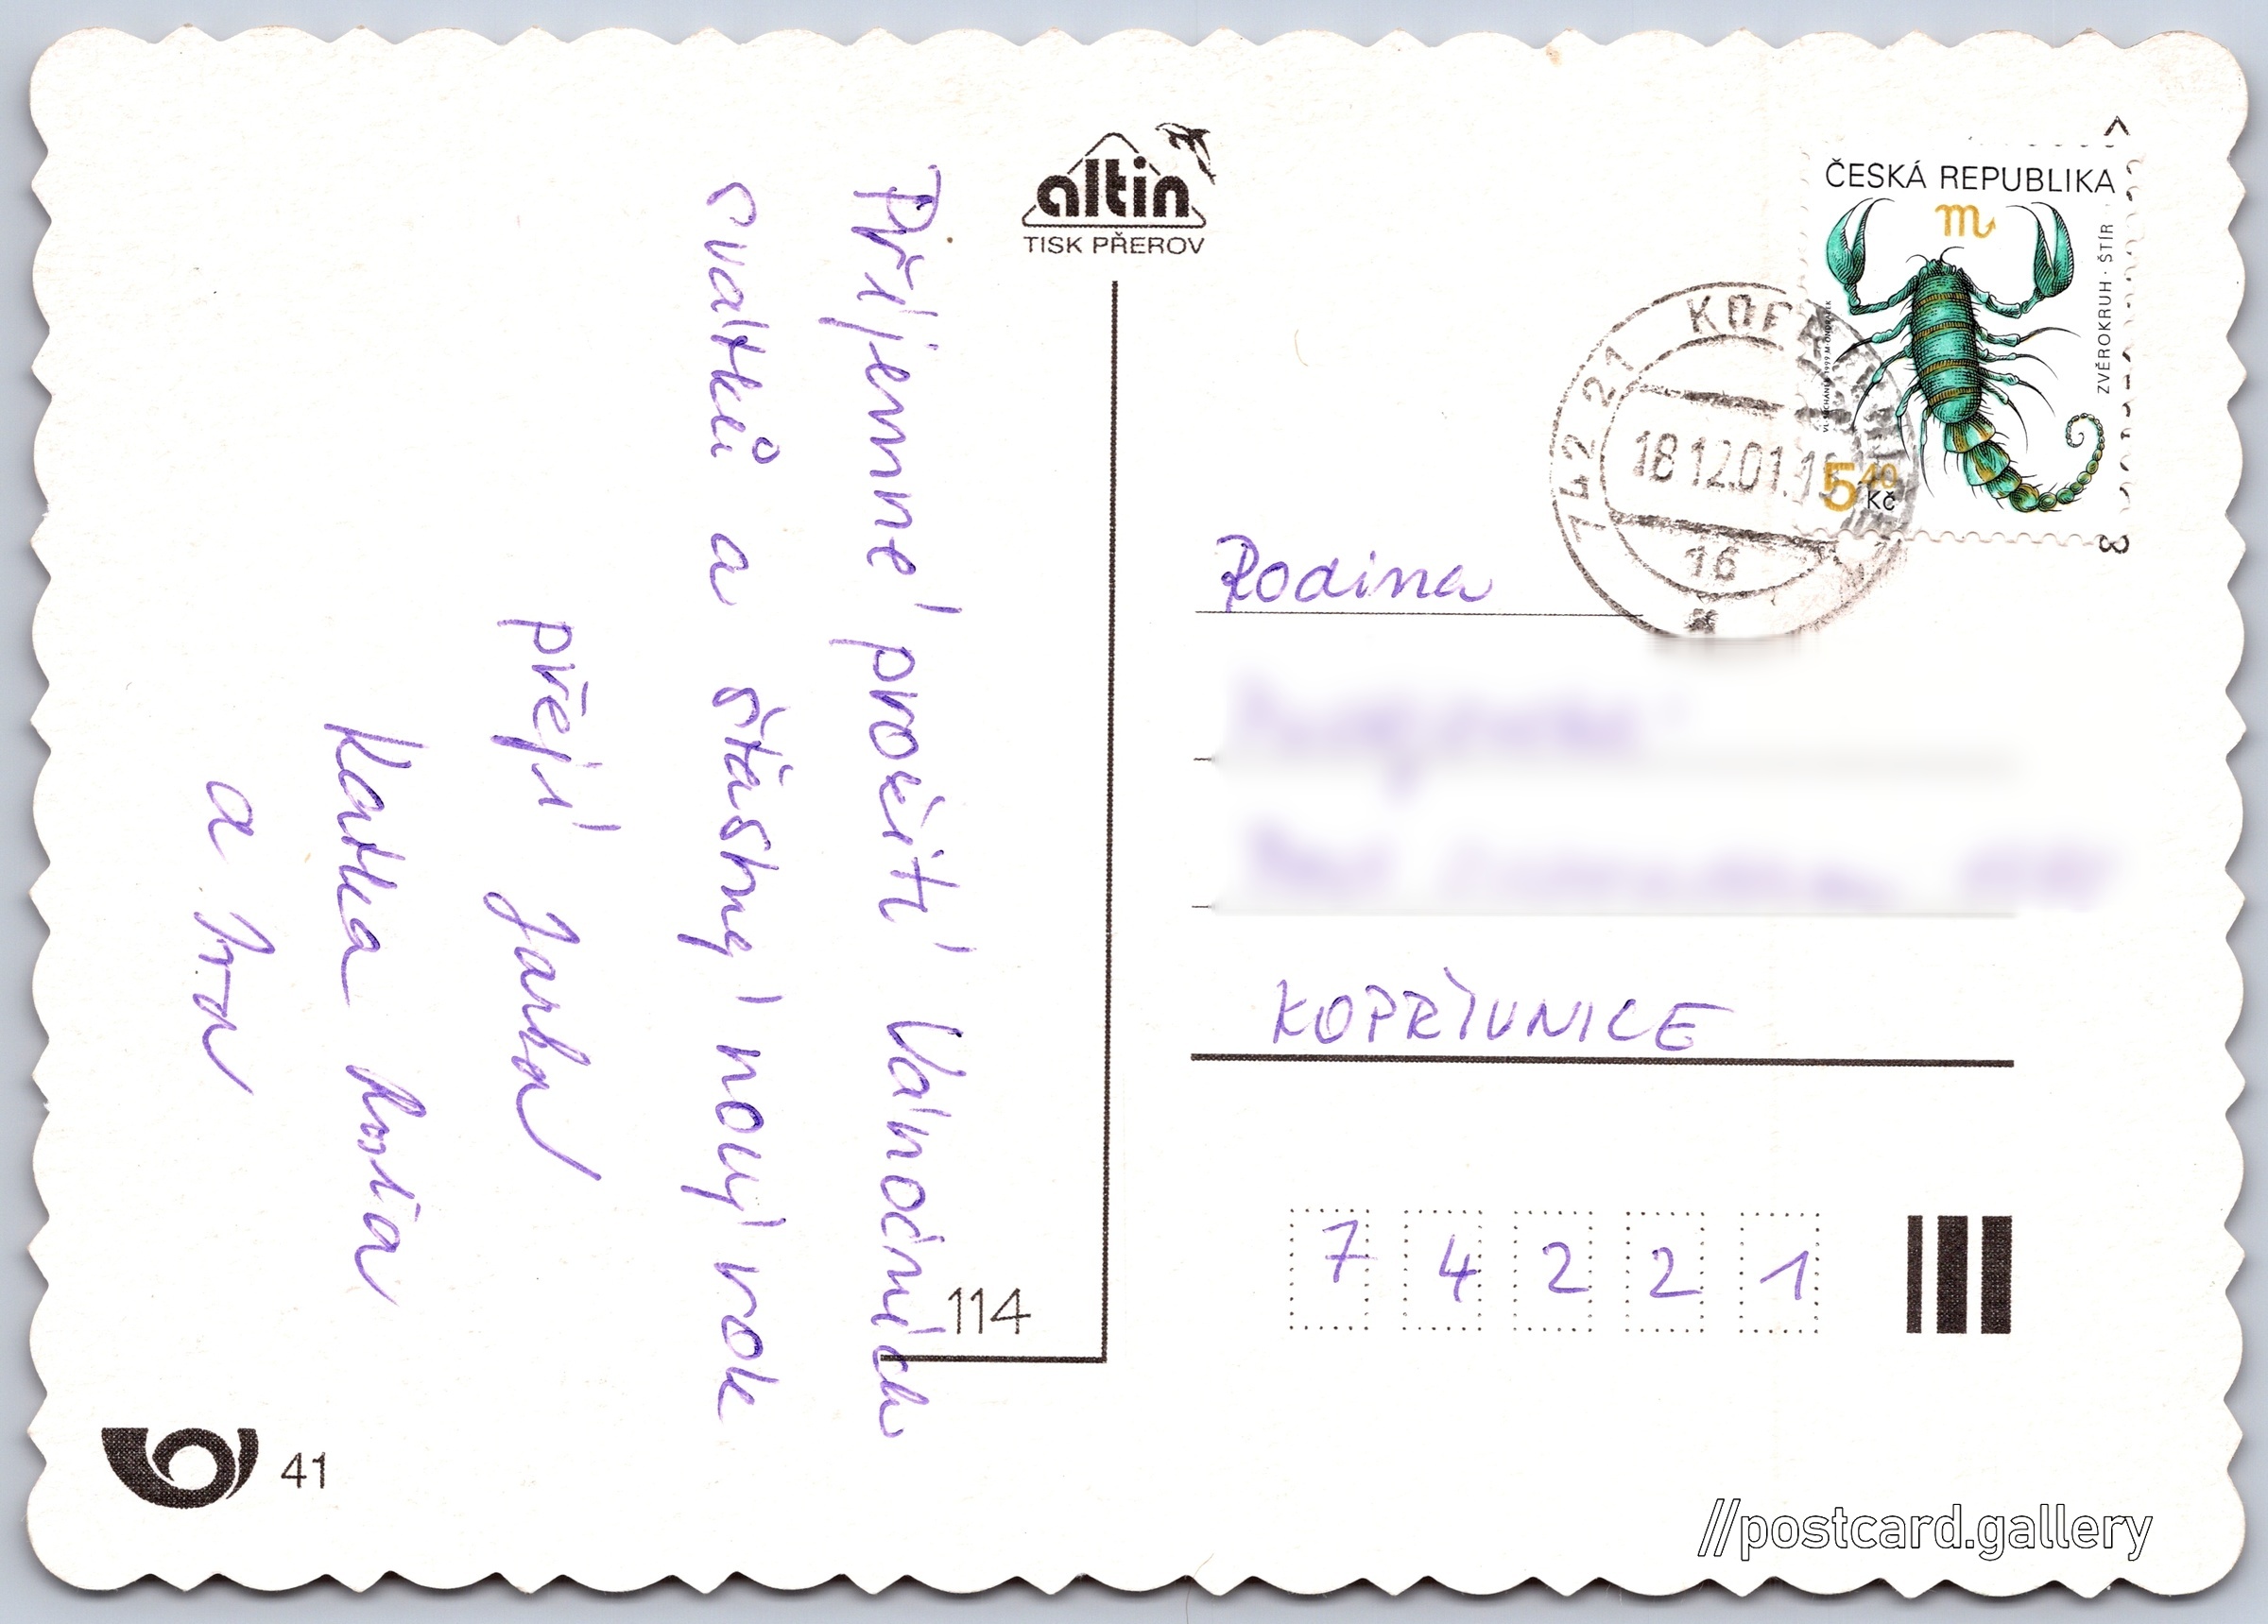 altin
TISK PŘEROV
Příjemné prožití Vánočních
svátků a šťastný nový rok
přejí Jarka
Katka
a
114
41
ČESKÁ REPUBLIKA
ZVĚROKRUH · ŠTÍR
5 40
Kč
742 21
18.12.01
16
Rodina
KOPŘIVNICE
7 4 2 2 1
//postcard.gallery